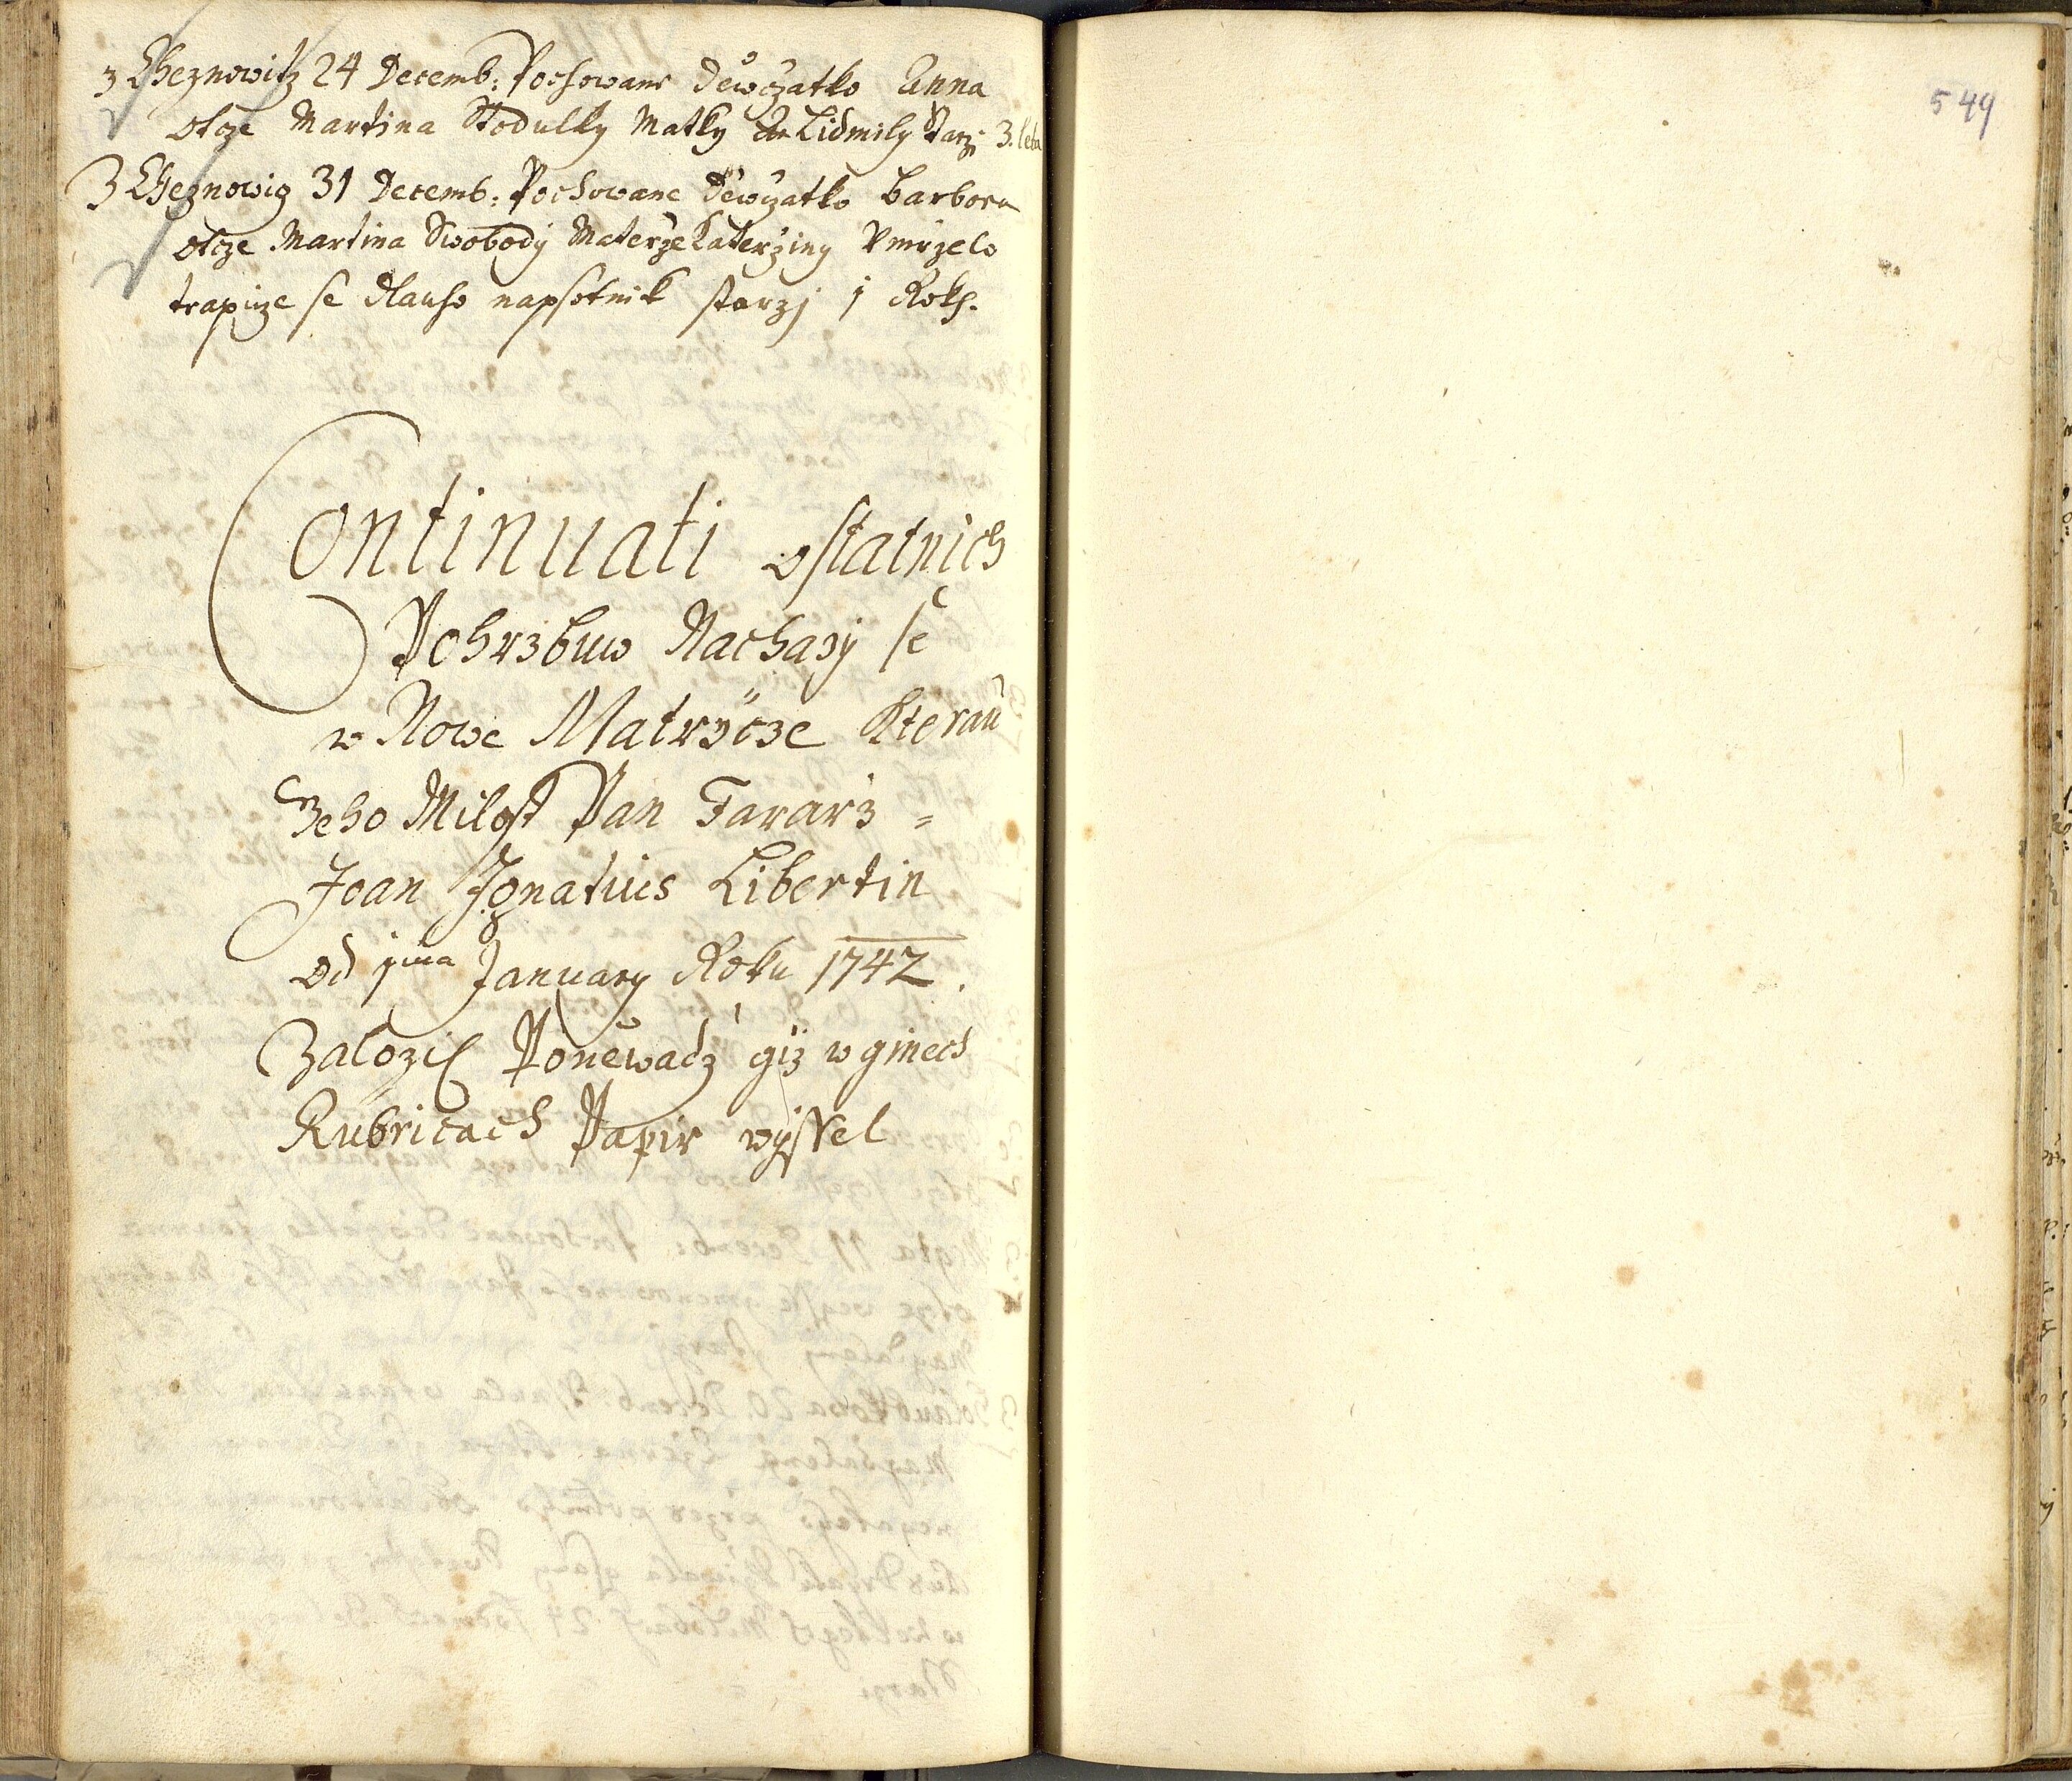 z Cheznowitz 24 Decemb: Pochowane děwczatko Anna
otcze Martina Stodulky Matky Lidmily starzj 3. leta
Z Cheznowicz 31 Decemb: Pochowane děwczatko Barbora
otcze Martina Swobody Materze Katerziny Vmrzelo
trapicze se dlauho napsotnik starzj 1 Rok.
Continuati ostatnich
Pohrzbuw Nachazy se
w Nowe Matrycze kterau
Jeho Milost Pan Fararz =
Joan Ignatius Libertin
od 1ma January Roku 1742.
Zalozil Ponewadz giz w ginech
Rubricach Papir wyssel
549